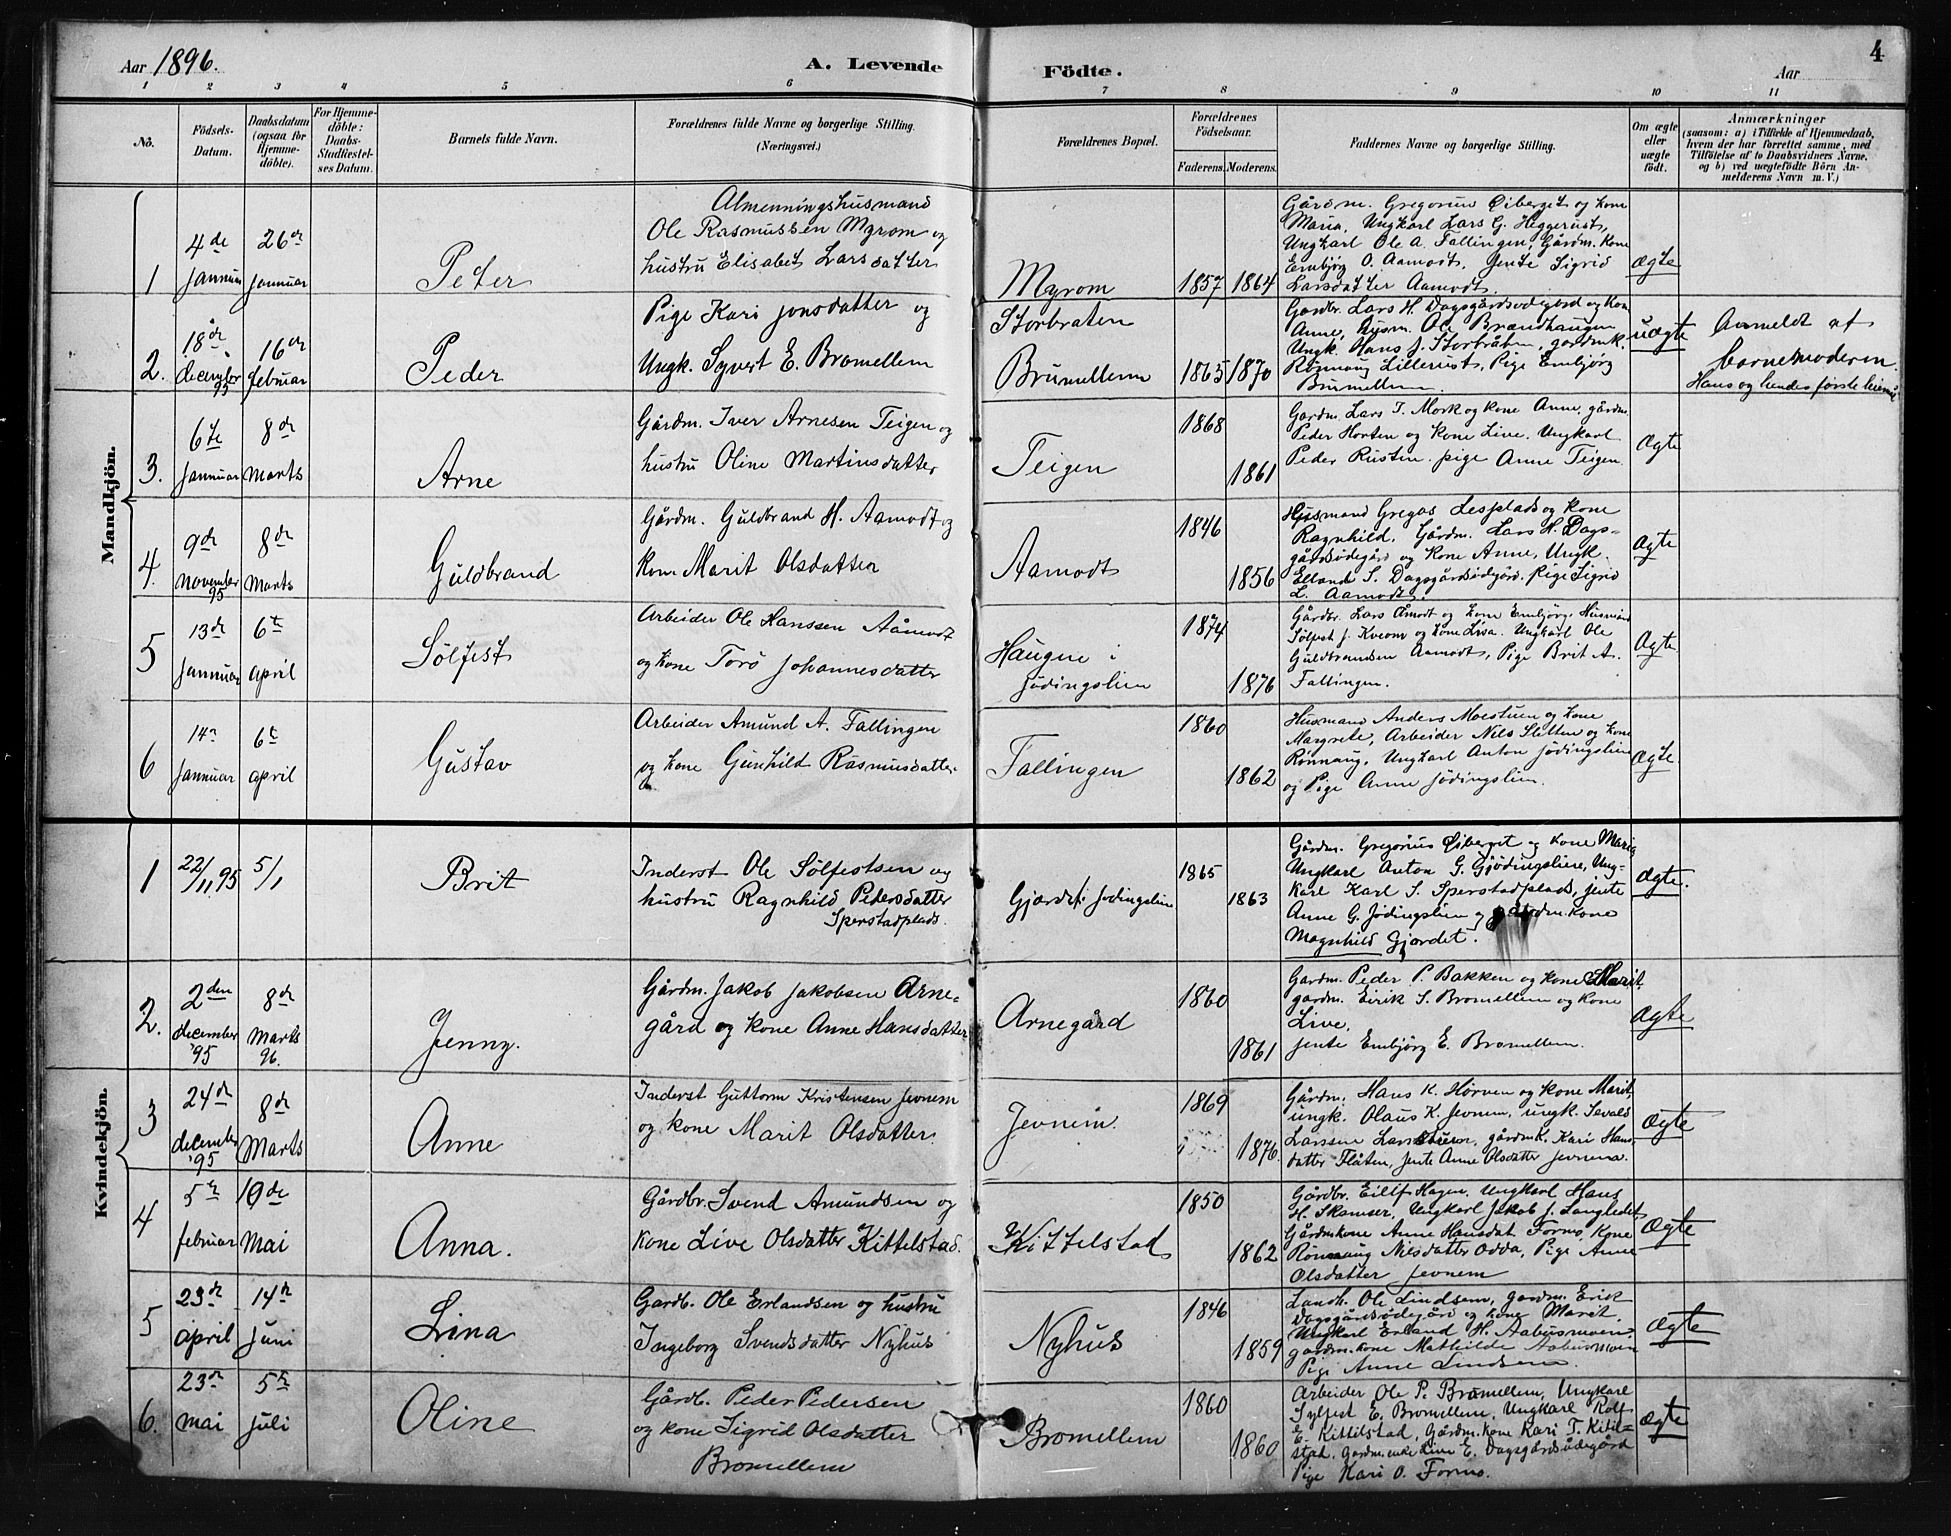 Aar 1896.
A. Levende
Födte.
Aar
4
1 2 3 4 5 6 7 8 9 10 11
No.
Födsels-
Datum.
Daabsdatum
(ogsaa for
Hjemme-
döbte).
For Hjemme-
döbte:
Daabs-
Stadfæstel-
ses Datum.
Barnets fulde Navn.
Forældrenes fulde Navne og borgerlige Stilling.
(Næringsvei.)
Forældrenes Bopæl.
Forældrenes
Födselsaar.
Faderens. Moderens.
Faddernes Navne og borgerlige Stilling.
Om ægte
eller
uægte
födt.
Anmærkninger
(saasom: a) i Tilfælde af Hjemmedaab,
hvem der har forrettet samme, med
Tilföielse af to Daabsvidners Navne,
og b) ved uægtefödte Börn An-
melderens Navn m. V.)
Mandkjön.
1
4de
Januar
26de
Januar
Peter
Almenningshusmand
Ole Rasmussen Myrom og
hustru Elisabet Larsdatter
Myrom
1857 1864
Gårdm. Gregorius Øiberget og kone
Maria, Ungkarl Lars G. Heggerust,
Ungkarl Ole A. Fallingen, Gårdm. kone
Embjørg O. Aamodt, Jente Sigrid
Larsdatter Aamodt.
ægte
2.
18de
december
95
16de
februar
Peder
Pige Kari Jonsdatter og
Ungk. Syvert E. Bromellem
Storbraten
Brumellem
1865 1870
Gardbr. Lars H. Dagsgårdsødegård og kone
Anne, Husm. Ole Brændhaugen
Ungk. Hans J. Storbråten, gardmk.
Rønnaug Lillerust, Pige Embjørg
Brumellem.
uægte
Anmeldt af
barnemoderen.
Hans og hendes første
3.
6te
Januar
8de
Marts
Arne
Gårdm. Iver Arnesen Teigen og
hustru Oline Martinsdatter
Teigen
1868
1861
Gardm. Lars T. Mork og kone Anne, gårdm.
Peder Horten og kone Live. Ungkarl
Peder Rusten. pige Anne Teigen.
Ægte
4.
9de
november
95
8de
Marts
Guldbrand
Gårdm. Guldbrand H. Aamodt og
kone Marit Olsdatter
Aamodt
1846
1856
Husmand Gregas Lesplads og kone
Ragnhild, Gårdm. Lars H. Dags-
gårdsødegård og kone Anne, Ungk.
Elland S. Dagsgårdsødegård. pige Sigrid
L. Aamodt.
Ægte
5
13de
Januar
6te
april
Sølfest
Arbeider Ole Hanssen Aåmodt
og kone Torø Johannesdatter
Haugne i
Jødingslien
1874
1876
Gårdbr. Lars Åmodt og kone Embjørg, Husmand
Sølfest J. Kveom og kone Lisa. Ungkarl Ole
Guldbrandsen Aamodt, Pige Brit A.
Fallingen.
Ægte
6
14de
Januar
6te
april
Gustav
Arbeider Amund A. Fallingen
og kone Gunhild Rasmusdatter
Fallingen
1860
1862
Husmand Anders Moestuen og kone
Margrete, Arbeider Nils Sletten og kone
Rønnaug, Ungkarl Anton Jødingslien
og Pige Anne Jødingslien.
Ægte.
Kvindekjön.
1
22/11 95
5/1
Brit
Inderst Ole Sølfestsen og
hustru Ragnhild Pedersdatter
Sperstadplads.
Gjærdet i Jødingslien
1865
1863
Gårdm. Gregorius Øiberget og kone Maria
Ungkarl Anton G. Gjødingslien, Ung-
karl Karl S. Sperstadplads, Jente
Anne G. Jødingslien og gårdm. kone
Magnhild Gjærdet.
Ægte.
2.
2den
december
'95
8de
Marts
96.
Jenny.
Gårdm. Jakob Jakobsen Arne-
gård og kone Anne Hansdatter
Arnegård
1860
1861
Gardm. Peder P. Bakken og kone Marit,
gardm. Eirik S. Bromellem og kone
Live,
Jente Embjørg E. Bromellem.
Ægte
3
24de
december
'95
8de
Marts
Anne
Inderst Guttorm Kristensen Jevnem
og kone Marit Olsdatter.
Jevnem.
1869
1876.
Gårdm. Hans K. Hørven og kone Marit,
ungk. Olaus K. Jevnem, ungk. Sevald
Larssen Larsstuen, gårdmk. Kari Hans-
datter Flåten, Jente Anne Olsdatter Jevnem.
Ægte
4
5te
februar
10de
Mai
Anna.
Gårdbr. Svend Amundsen og
kone Live Olsdatter Kittelstad.
Kittelstad
1850
1862
Gårdbr. Eilif Hagen, Ungkarl Hans
H. Skamsar, Ungkarl Jakob J. Langledet,
Gårdmkone Anne Hansdat Formo, kone
Rønnaug Nilsdatter Odda, Pige Anne
Olsdatter Jevnem
Ægte
5
23de
april
14de
juni
Lina
Gardb. Ole Erlandsen og hustru
Ingeborg Svendsdatter Nyhus
Nyhus
1846
1859
Landh. Ole Lindsem, gardm. Erik
Dagsgårdsødegård og kone Marit,
Ungkarl Erland H. Aabusmoen,
gårdm. kone Mathilde Aabusmoen
Pige Anne Lindsem.
Ægte
6.
23de
mai
5te
juli
Oline
Gårdb. Peder Pedersen
og kone Sigrid Olsdatter
Bromellem
Bromellem
1860
1860
Arbeider Ole P. Brumellem, Ungkarl
Sylfest E. Bromellem, Ungkarl Rolf
E. Kittilstad, Gårdm. kone Kari T. Kittil-
stad, gardm. enke Live E. Dagsgårdsødegård
Pige Kari O. Formo.
Ægte